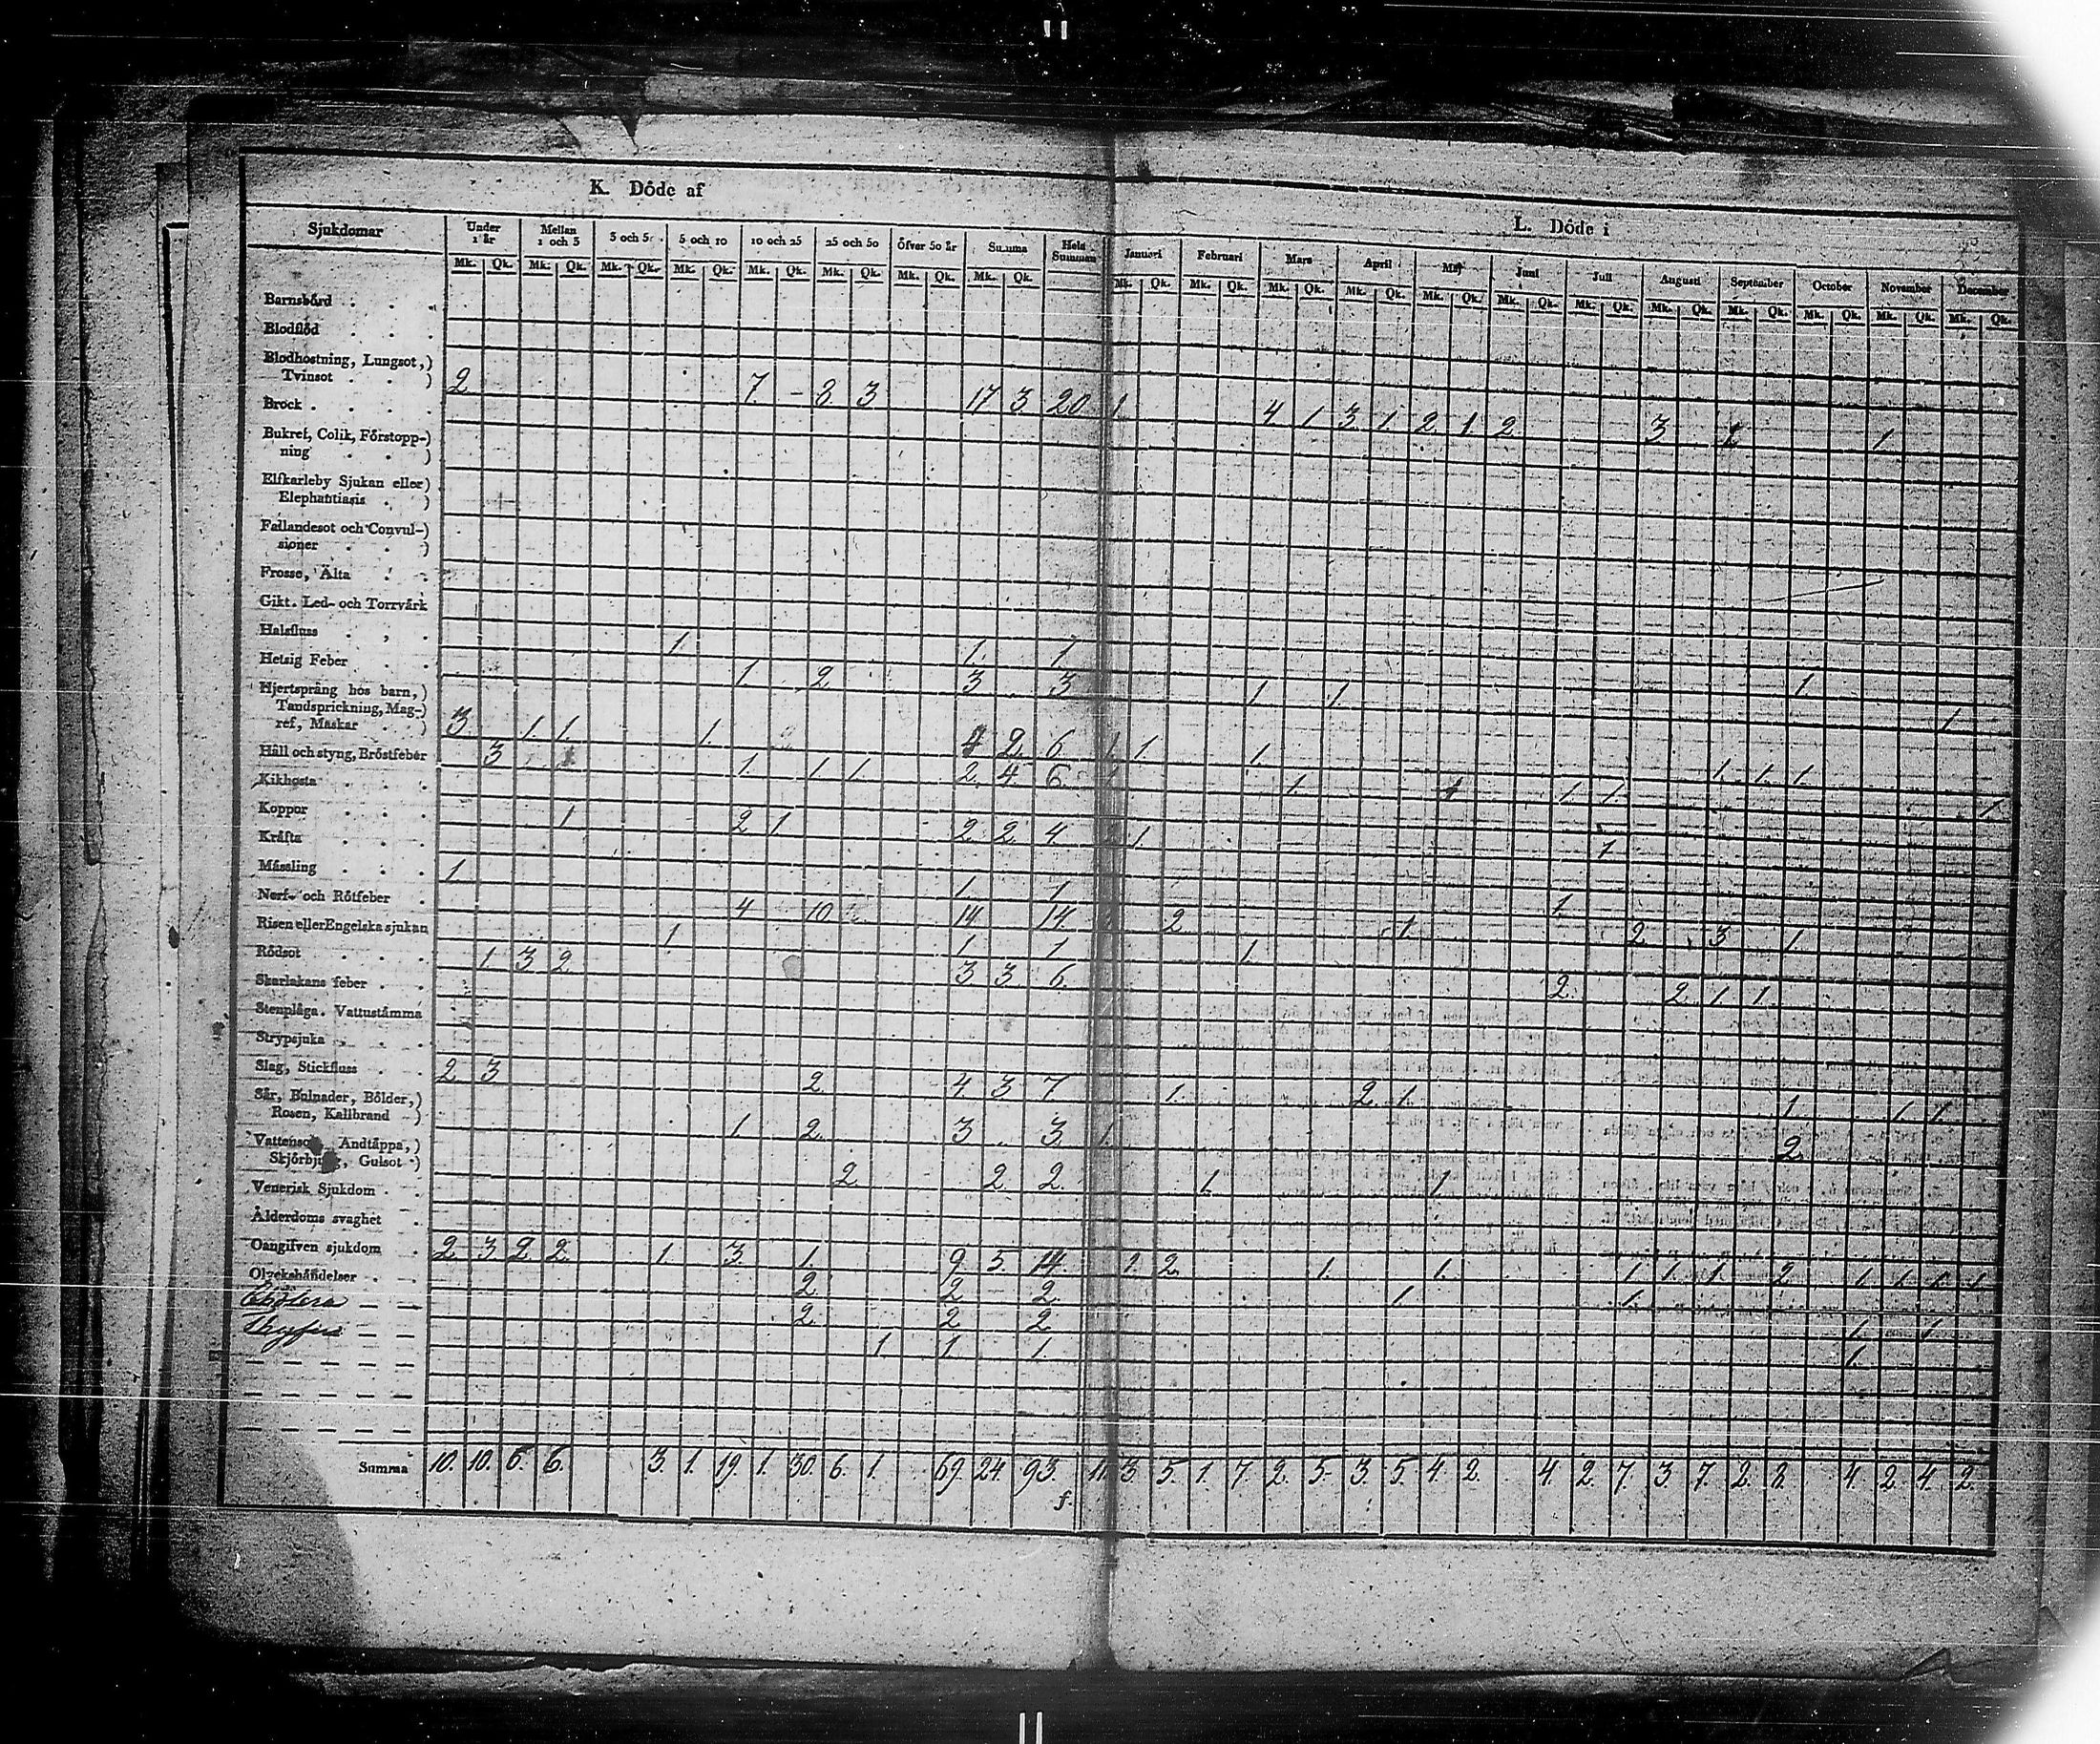 K. Döde af
L. Döde i
Sjukdomar Under 1 år Mellan 1 och 3 3 och 5 5 och 10 10 och 25 25 och 50 öfver 50 år Summa Hela Summan Januari Februari Mars April Maj Juni Juli Augusti September October November December
Mk. Qk. Mk. Qk. Mk. Qk. Mk. Qk. Mk. Qk. Mk. Qk. Mk. Qk. Mk. Qk. Mk. Qk. Mk. Qk. Mk. Qk. Mk. Qk. Mk. Qk. Mk. Qk. Mk. Qk. Mk. Qk. Mk. Qk. Mk. Qk. Mk. Qk. Mk. Qk.
Barnsbörd
Blodflöd
Blodhostning, Lungsot,)
Tvinsot ) 2 7 - 8 3 17 3 20 1 4 1 3 1 2 1 2 3 1 1
Bråck
Bukref, Colik, Förstopp-)
ning )
Elfkarleby Sjukan eller)
Elephantiasis )
Fallandesot och Convul-)
sioner )
Frosse, Älta
Gikt. Led- och Torrvärk
Halsfluss 1 1. 1 1.
Hetsig Feber 1 2 3 3 1 1 1.
Hjertsprång hos barn,)
Tandsprickning, Mag-)
ref, Maskar ) 3 1. 1. 1. 4 2 6 1 1 1. 1. 1. 1.
Håll och styng, Bröstfeber 3 1. 1 1. 2. 4. 6. 1 1. 1 1. 1. 1.
Kikhosta
Koppor 1 2 1 2. 2. 4 2 1 1
Kräfta
Mässling 1. 1. 1 1.
Nerf- och Rötfeber 4 10 14 14 2 1. 2 3 1.
Risen eller Engelska sjukan 1 1 1 1.
Rödsot 1 3 2 3 3 6 2 2 1 1
Skarlakans feber
Stenplåga. Vattustämma
Strypsjuka
Slag, Stickfluss 2 3 2 4 3 7 1. 2 1. 1 1. 1.
Sår, Bulnader, Bölder,)
Rosen, Kallbrand ) 1. 2. 3 3 1. 2
Vattensot, Andtäppa,)
Skjörbjugg, Gulsot ) 2 2 2 1. 1.
Venerisk Sjukdom
Ålderdoms svaghet
Oangifven sjukdom 2 3 2 2 1. 3. 1. 9. 5 14 2 2 1. 1. 1. 1. 1. 2 1. 1. 1. 1
Olyckshändelser 2 2 2 1. 1.
Cholera 2. 2 2 1. 1.
1 1 1. 1.
Summa 10. 10. 6. 6. 3. 1. 19. 1. 30. 6. 1. 69. 24. 93. 11. 3. 5. 1. 7. 2. 5. 3. 5. 4. 2. 4. 2. 7. 3. 7. 2. 8. 4. 2. 4. 2.